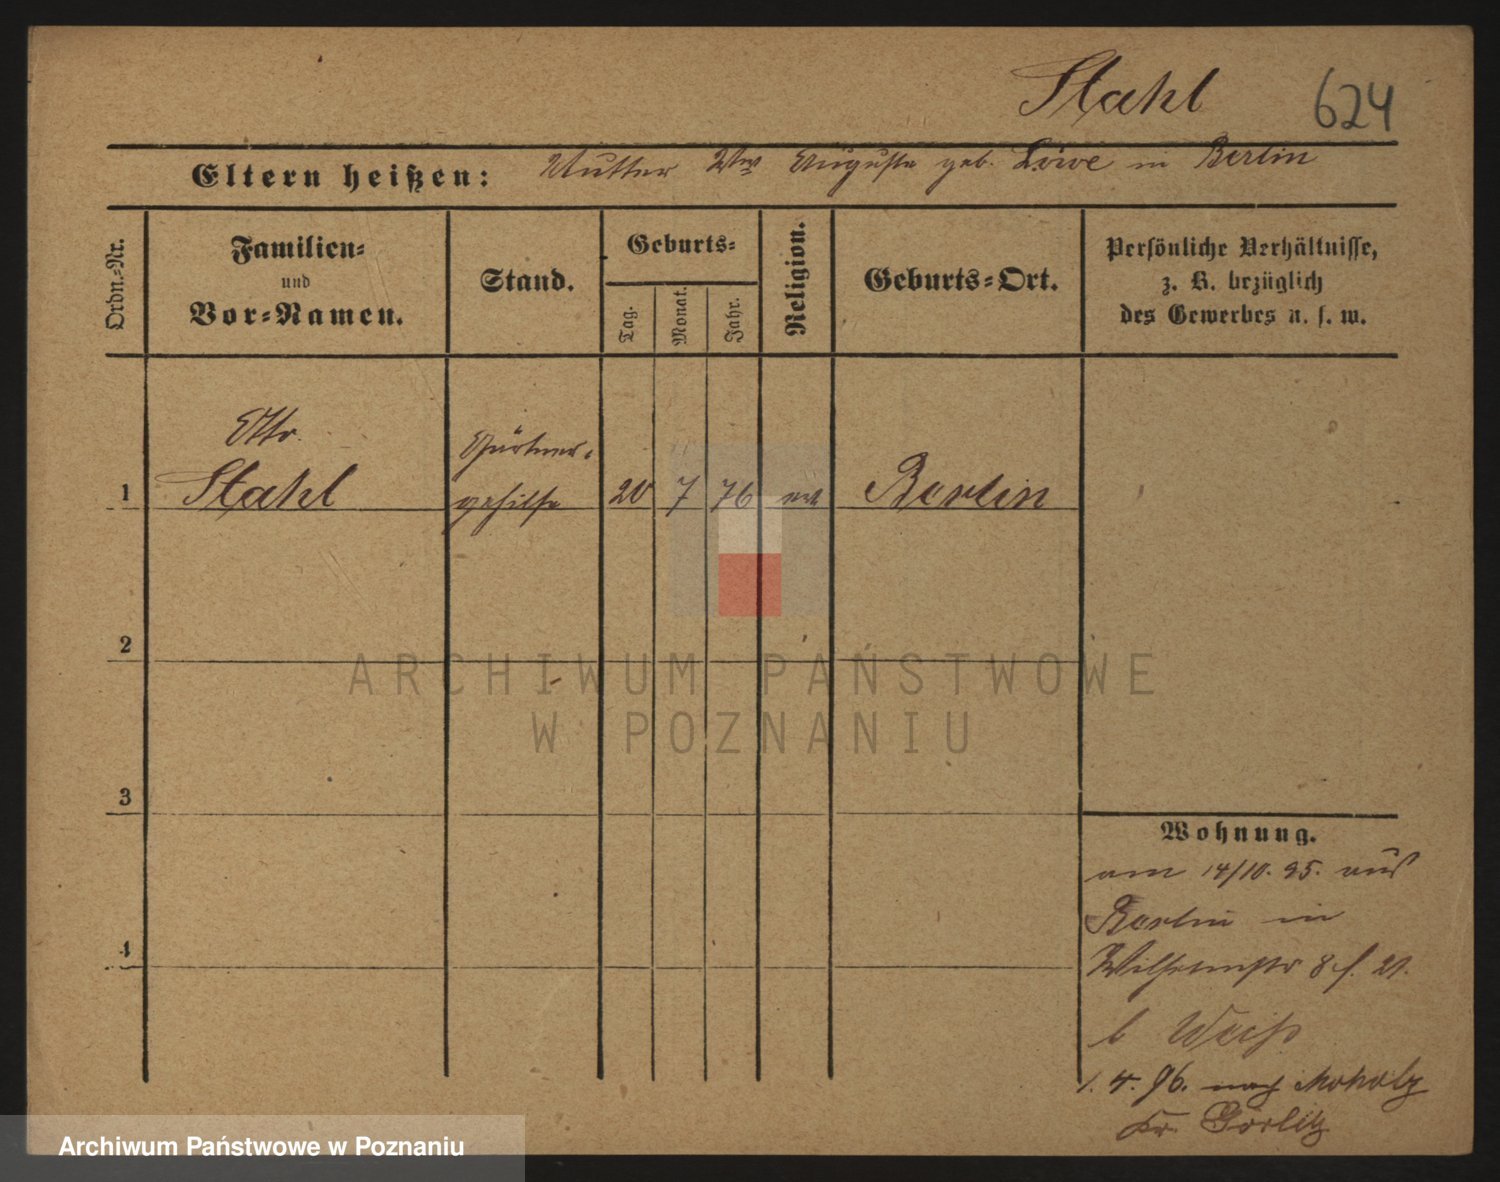 Stahl 624
Eltern heißen: Mutter Ww Auguste geb. Löwe in Berlin
Ordn.-Nr.
Familien-
und
Vor-Namen.
Stand.
Geburts-
Tag.
Monat.
Jahr.
Religion.
Geburts-Ort.
Persönliche Verhältnisse,
z. B. bezüglich
des Gewerbes u. s. w.
Otto
Gärtner-
1 Stahl gehilfe 20 7 76 ev Berlin
2
3
4
Wohnung.
am 14/10. 95. aus
Berlin in
Wilhelmstr 8
b Weiß
1. 4. 96. nach Moholz
Kr. Görlitz
ARCHIWUM PAŃSTWOWE
W POZNANIU
Archiwum Państwowe w Poznaniu